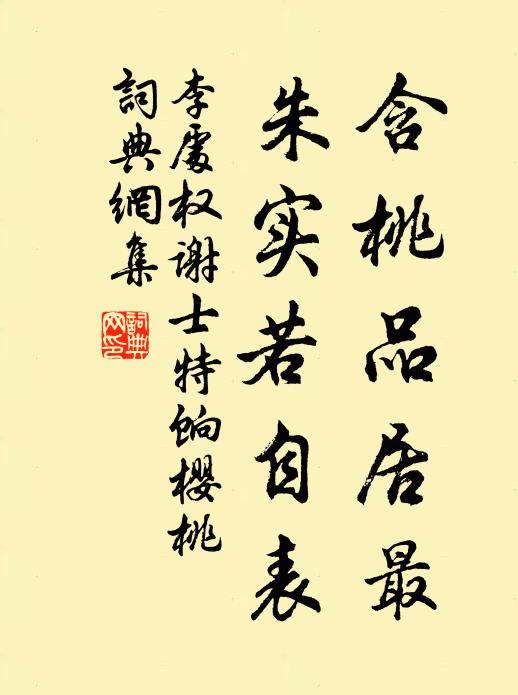 含桃品居最
朱实若自表
李處权谢士特饷樱桃
詞典網集
詞典網印